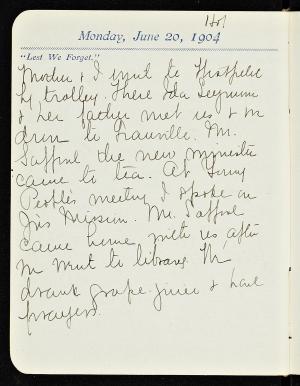 Hot
Monday, June 20, 1904
"Lest We Forget."
Mother & I went to
by trolley. There Ida Seymour
& her father met us & we
drove to Granville. Mr.
the new minister
came to tea. At Young
People's meeting I spoke on
Mission. Mr.
came home with us after
we went to library. We
drank grape-juice & had
prayers.